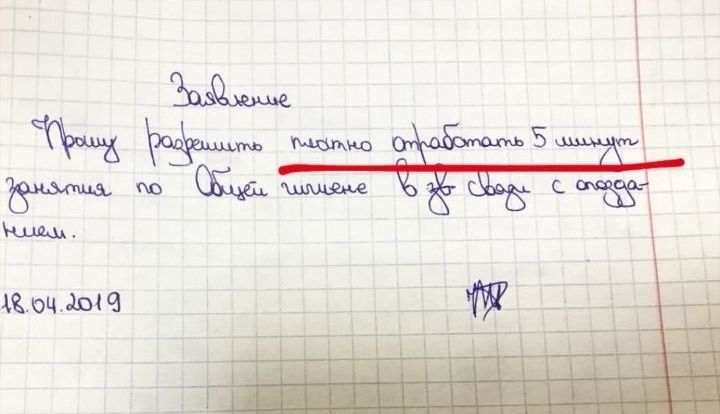 Заявление
Прошу разрешить платно отработать 5 минут
занятия по Общей гигиене в связи с опозда-
нием.
18.04.2019